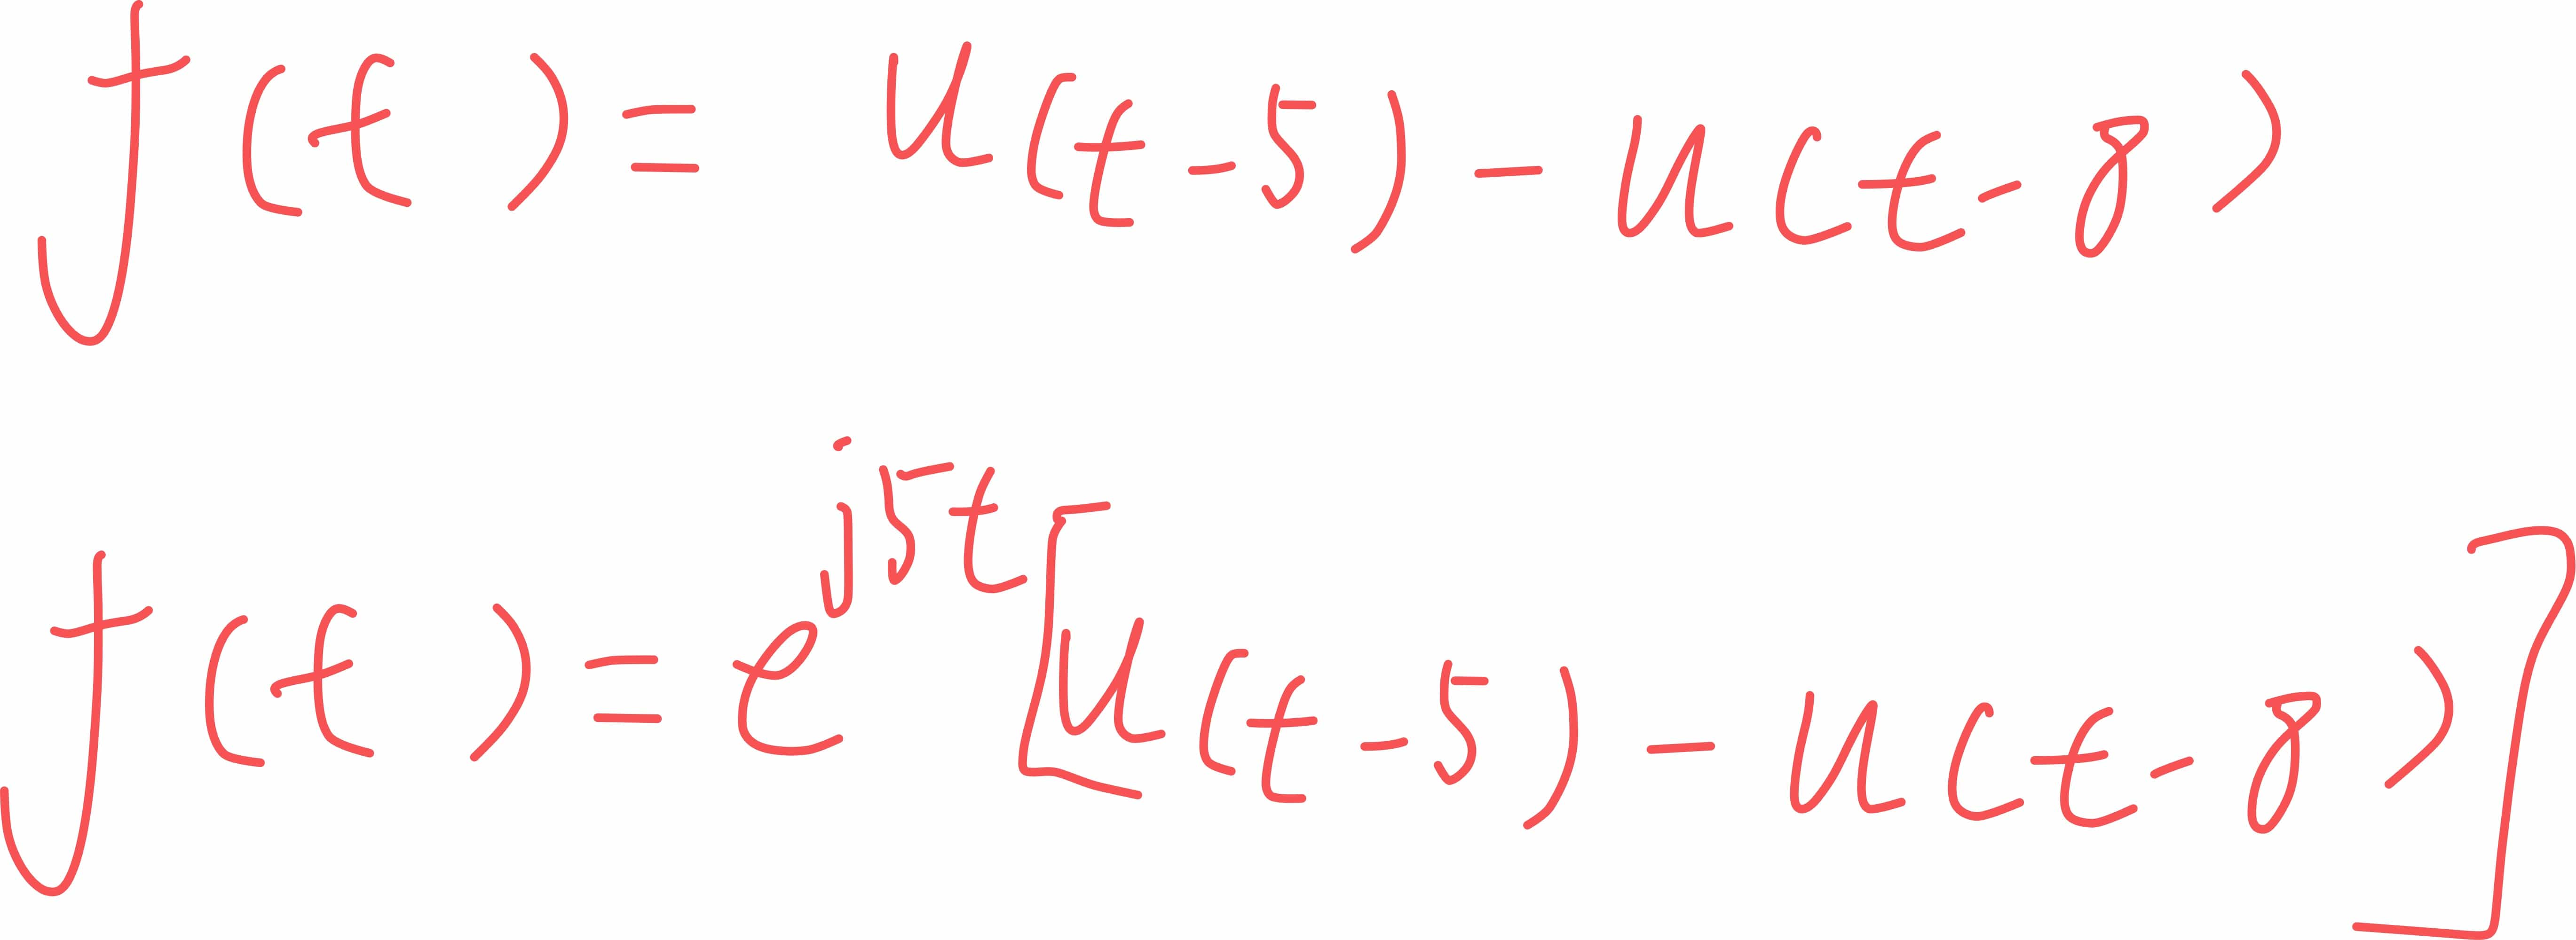 f(t) = u(t-5) - u(t-8)
f(t) = e^{j5t}[u(t-5) - u(t-8)]